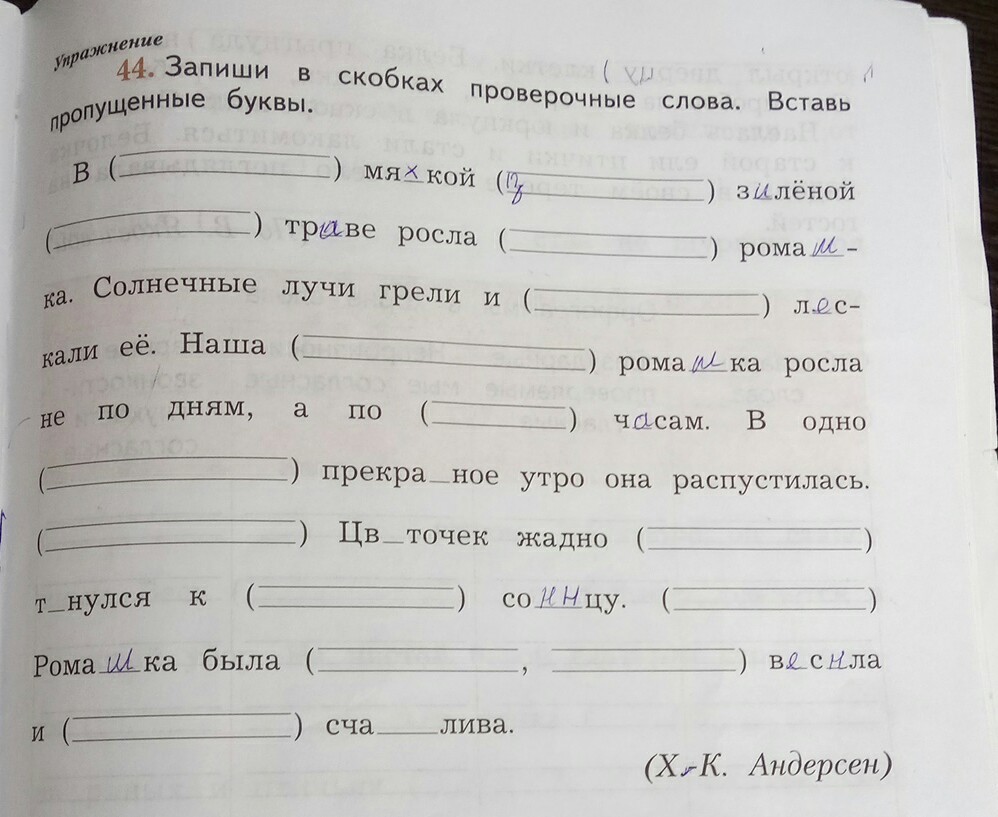 Упражнение
44. Запиши в скобках проверочные слова. Вставь
пропущенные буквы.
В (_____) мяхкой (_____) зилёной
(_____) траве росла (_____) ромаш-
ка. Солнечные лучи грели и (_____) лес-
кали её. Наша (_____) ромашка росла
не по дням, а по (_____) часам. В одно
(_____) прекра_ное утро она распустилась.
(_____) Цв_точек жадно (_____)
т_нулся к (_____) соннцу. (_____)
Ромашка была (_____, _____) веснла
и (_____) сча___лива.
(Х.-К. Андерсен)